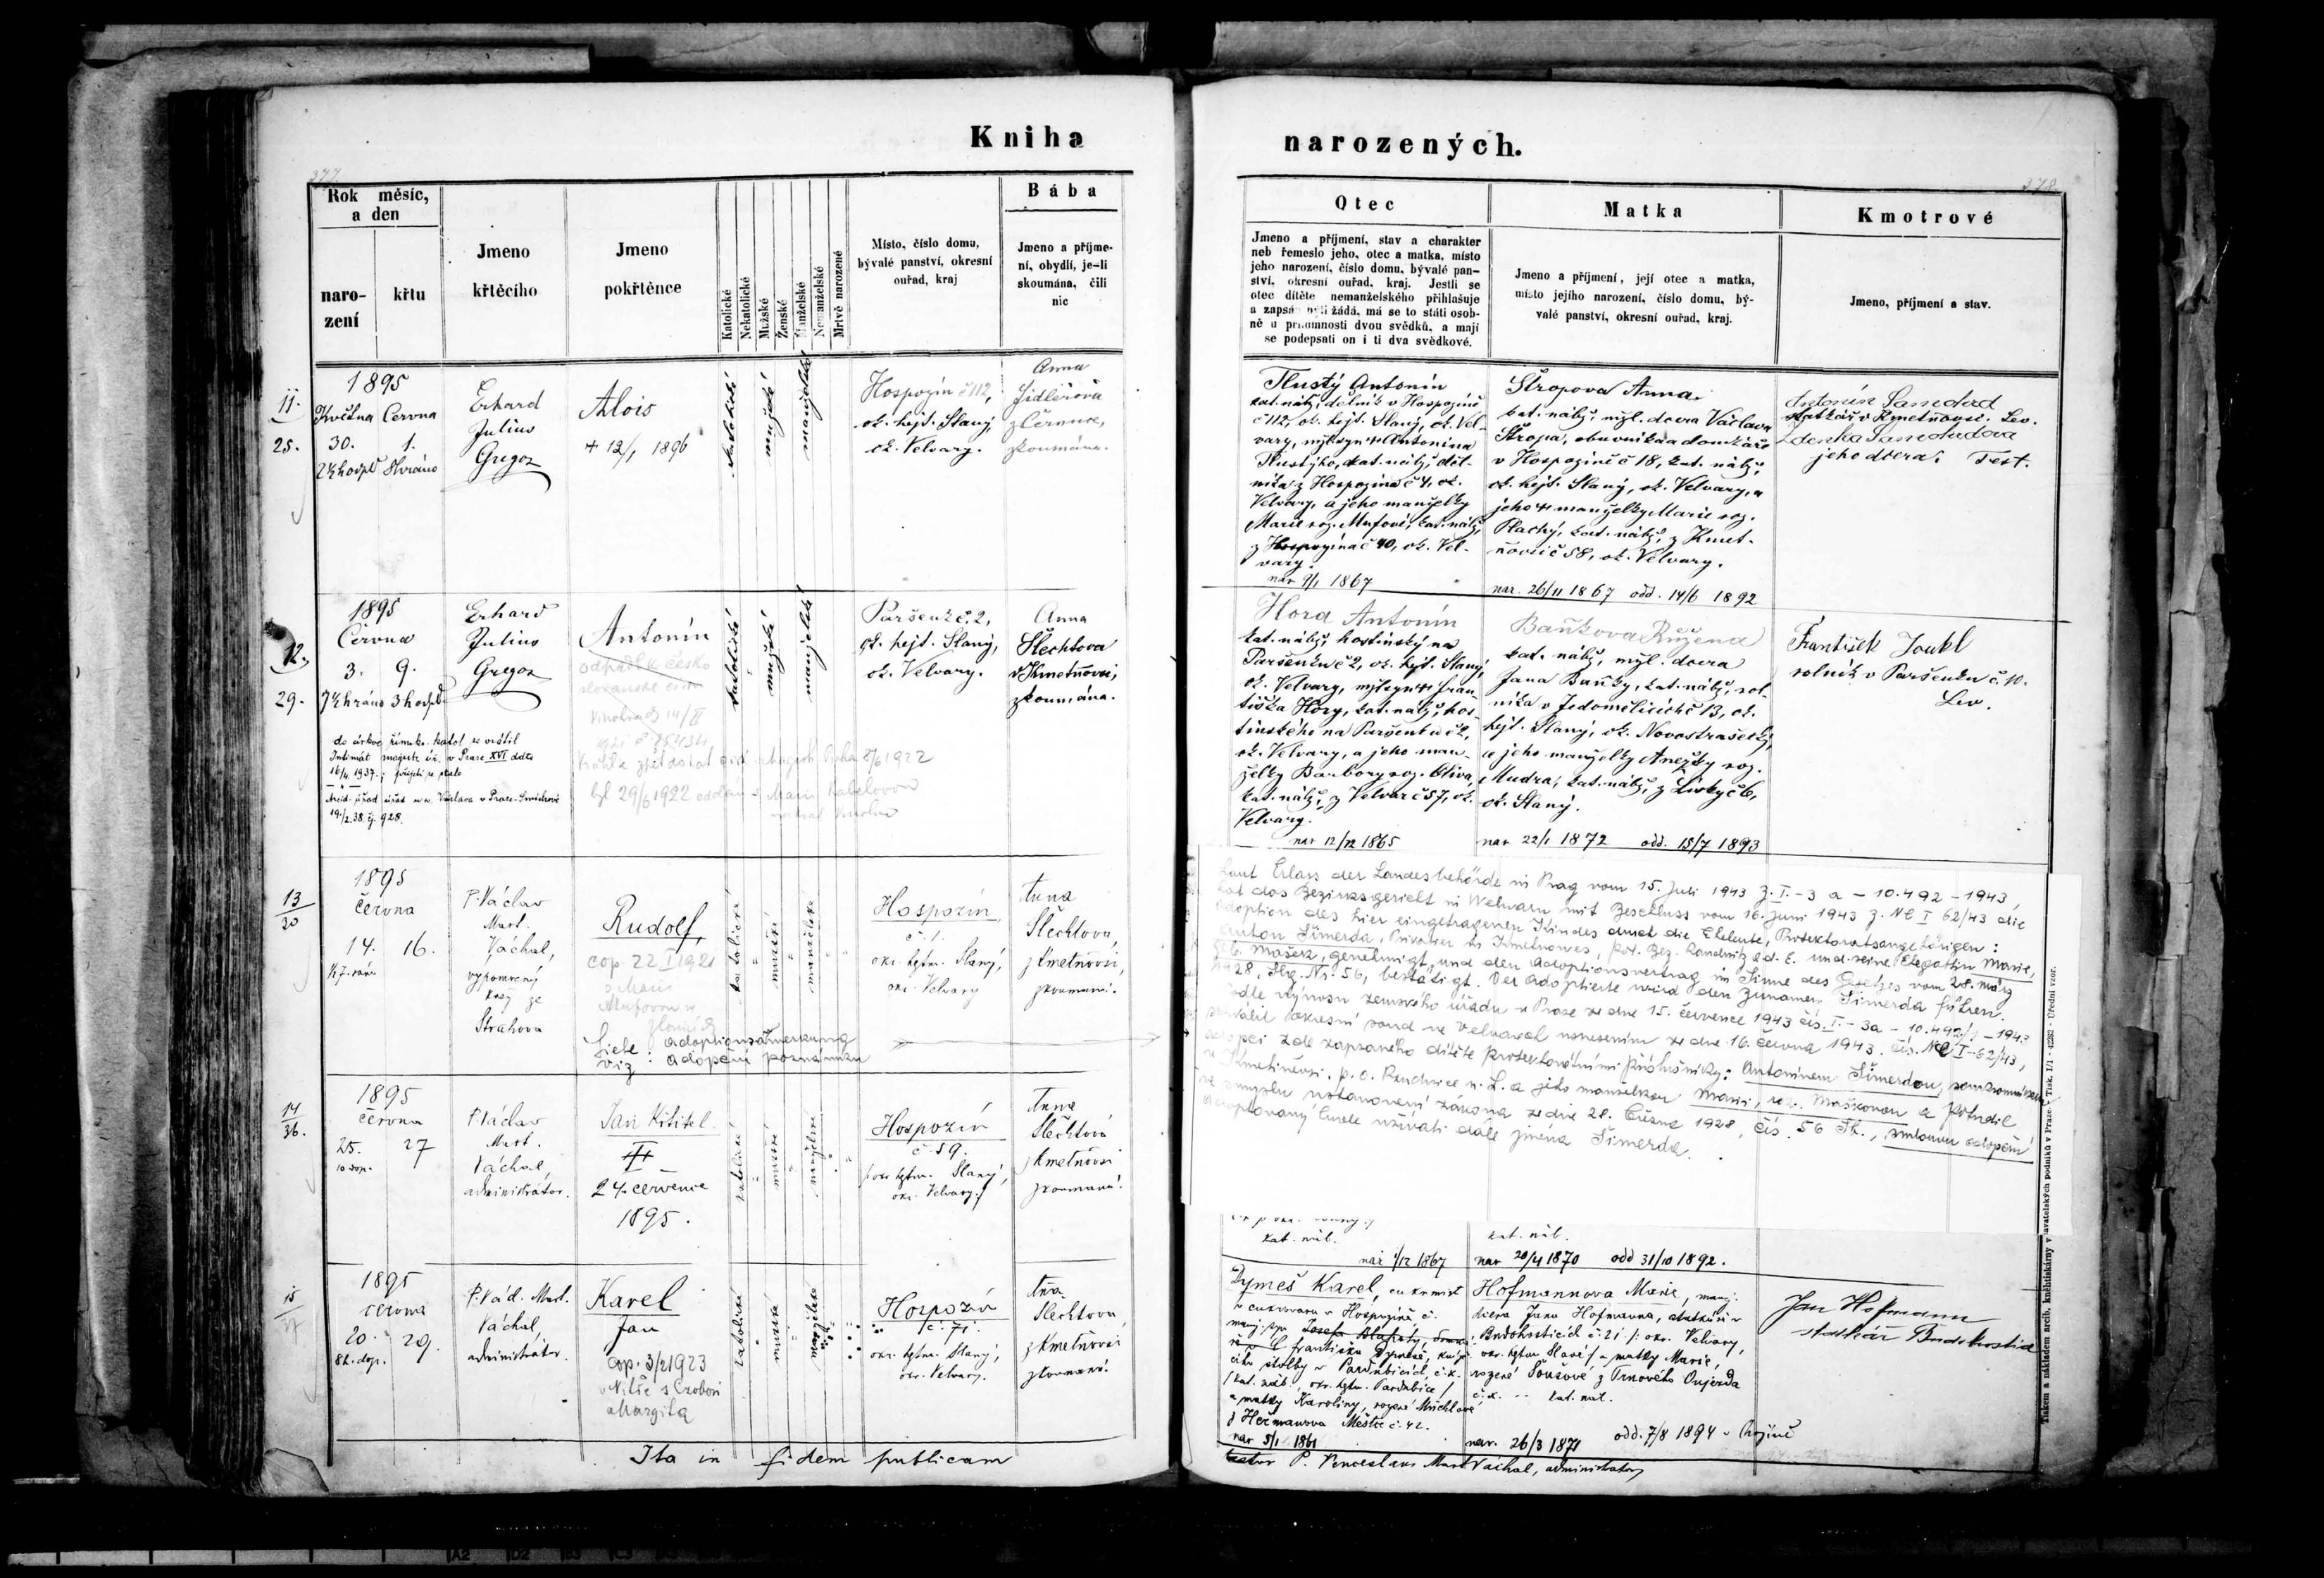 Kniha
narozených.
377
378
Rok měsíc,
a den
naro-
zení
křtu
Jmeno
křtěcího
Jmeno
pokřtěnce
Katolické
Nekatolické
Mužské
Ženské
Manželské
Nemanželské
Mrtvě narozené
Místo, číslo domu,
bývalé panství, okresní
ouřad, kraj
Bába
Jmeno a příjme-
ní, obydlí, je-li
skoumána, čili
nic
Otec
Jmeno a příjmení, stav a charakter
neb řemeslo jeho, otec a matka, místo
jeho narození, číslo domu, bývalé pan-
ství, okresní ouřad, kraj. Jestli se
otec dítěte nemanželského přihlašuje
a zapsán býti žádá, má se to státi osob-
ně u přítomnosti dvou svědků, a mají
se podepsati on i ti dva svědkové.
Matka
Jmeno a příjmení, její otec a matka,
místo jejího narození, číslo domu, bý-
valé panství, okresní ouřad, kraj.
Kmotrové
Jmeno, příjmení a stav.
11.
25.
1895
Května Června
30. 1.
Erhard
Julius
Gregor
Alois
+ 12/1 1896
katolické
mužské
manželské
Hospozín č 112,
ok. hejt. Slaný,
ok. Velvary.
Anna
Fidlerova
z Černuce,
zkoumána.
Tlustý Antonín
kat. nábž, dělník v Hospozíně
č 112, ok. hejt. Slaný, ok. Vel-
vary, mžl. syn + Antonína
Tlustýho, kat. nábž, děl-
níka z Hospozína č 4, ok.
Velvary, a jeho manželky
Marie roz. Mufové, kat. nábž,
z Hospozína č 40, ok. Vel-
vary.
nar 9/1 1867
Štropova Anna
kat. nábž, mžl. dcera Václava
Štropa, obuvníka a domkáře
v Hospozíně č 18, kat. nábž,
ok. hejt. Slaný, ok. Velvary, a
jeho + manželky Marie roz.
Plachý, kat. nábž, z Kmet-
ňovsi č 58, ok. Velvary.
nar. 26/11 1867 odd. 14/6 1892
Antonín Samohud
statkář v Kmetňovsi. Lev.
Zdenka Samohudova
jeho dcera. Test.
12.
29.
1895
Června
3. 9.
7½ h ráno 3 h odpol.
Erhard
Julius
Gregor
Antonín
odpadl k česko
slovanské církvi
do církve římsko-katol se vrátil
Intimát magistr. úř. v Praze XVI ddto
16/4. 1937.
19./2.38. čj. 928.
byl 29/6 1922 oddán s Marií
katolické
mužské
manželské
Paršenk č. 2,
ok. hejt. Slaný,
ok. Velvary.
Anna
Šlechtova
z Kmetňovsi,
zkoumána.
Hora Antonín
kat. nábž, hostinský na
Paršenku č 2, ok. hejt. Slaný,
ok. Velvary, mžl. syn + Fran-
tiška Hory, kat. nábž, hos-
tinského na Paršenku č 2,
ok. Velvary, a jeho man-
želky Barbory roz. Oliva,
kat. nábž, z Velvar č 57, ok.
Velvary.
nar 12/12 1865
Baňkova Růžena
kat. nábž, mžl. dcera
Jana Baňky, kat. nábž, rol-
níka v Jedomělicích č 13, ok.
hejt. Slaný, ok. Novostrašecký,
a jeho manželky Anežky roz.
Mudra, kat. nábž, z Lisky č 6,
ok. Slaný.
nar 22/1 1872 odd. 15/7 1893
František Joukl
rolník v Paršenku č. 10.
Lev.
13
30
1895
Června
14. 16.
P. Václav
Mart.
Váchal,
výpomocný
kněz ze
Strahova
Rudolf,
cop 22 I 1921
s Marií
Mufovou
Siehe: Adoptionsanmerkung
Viz: adopční poznámku
katolické
mužské
manželské
Hospozín
č. 1.
okr. hejtm. Slaný,
okr. Velvary
Anna
Šlechtová,
z Kmetňovsi,
zkoumaná.
Laut Erlass der Landesbehörde in Prag vom 15. Juli 1943 Z. I.-3 a - 10.492 - 1943,
hat das Bezirksgericht in Welwarn mit Beschluss vom 16. Juni 1943 Z. NC I 62/43 die
Adoption des hier eingetragenen Kindes durch die Eheleute, Protektoratsangehörigen:
Anton Šimerda, Privatier in Kmetnowes, pol. Bez. Raudnitz a.d. E. und seine Ehegattin Marie,
geb. Mašek, genehmigt, und den Adoptionsvertrag im Sinne des Gesetzes vom 28. März
1928, Slg. Nr. 56, bestätigt. Der Adoptierte wird den Zunamen Šimerda führen.
Podle výnosu zemského úřadu v Praze ze dne 15. července 1943 čís. I.-3a-10.492/1-1943
schválil okresní soud ve Velvarech usnesením ze dne 16. června 1943. čís. NC I-62/43,
adopci zde zapsaného dítěte protektorátními příslušníky: Antonínem Šimerdou, soukromníkem
v Kmetiněvsi, p. o. Roudnice n. L. a jeho manželkou Marií, roz. Maškovou a potvrdil
ve smyslu ustanovení zákona ze dne 28. března 1928, čís. 56 Sb., smlouvu adopční
Adoptovaný bude užívati dále jména Šimerda.
14
36.
1895
Června
25. 27
10 dop.
P. Václav
Mart.
Váchal,
administrátor.
Jan Křtitel.
24. července
1895.
katolické
mužské
manželské
Hospozín
č 59.
okr. hejtm. Slaný,
okr. Velvary
Anna
Šlechtová
z Kmetňovsi
zkoumaná.
kat. náb.
nar 1/12 1867
kat. náb.
nar 28/4 1870 odd 31/10 1892.
15
37
1895
června
20. 29.
8 h. dop.
P. Václ. Mart.
Váchal,
administrátor.
Karel
Jan
cop. 3/2 1923
v Nitře s Czobori
Margita
katolické
mužské
manželské
Hospozín
č. 71.
okr. hejtm. Slaný,
okr. Velvary.
Anna
Šlechtová,
z Kmetňovsi
zkoumaná.
Dymeš Karel, cukrmistr
v cukrovaru v Hospozíně, č.
a matky Karoliny, rozené Müchlové
z Heřmanova Městce č. 42.
nar 5/1 1861
Hofmannova Marie, manž.
dcera Jana Hofmanna, statkáře v
Budohosticích č. 21 /: okr. Velvary,
okr. hejtm Slaný / a matky Marie,
rozené Šoušové z Trnového Oujezda
č. x. kat. nab.
nar. 26/3 1871 odd. 7/8 1894
Jan Hofmann
statkář Budohostice
Ita in fidem publicam
testor P. Venceslaus Mart Váchal, administrator
Tiskem a nákladem arcib. knihtiskárny v Praze. - Tisk. I/1 - 42282 - Úřední vzor.